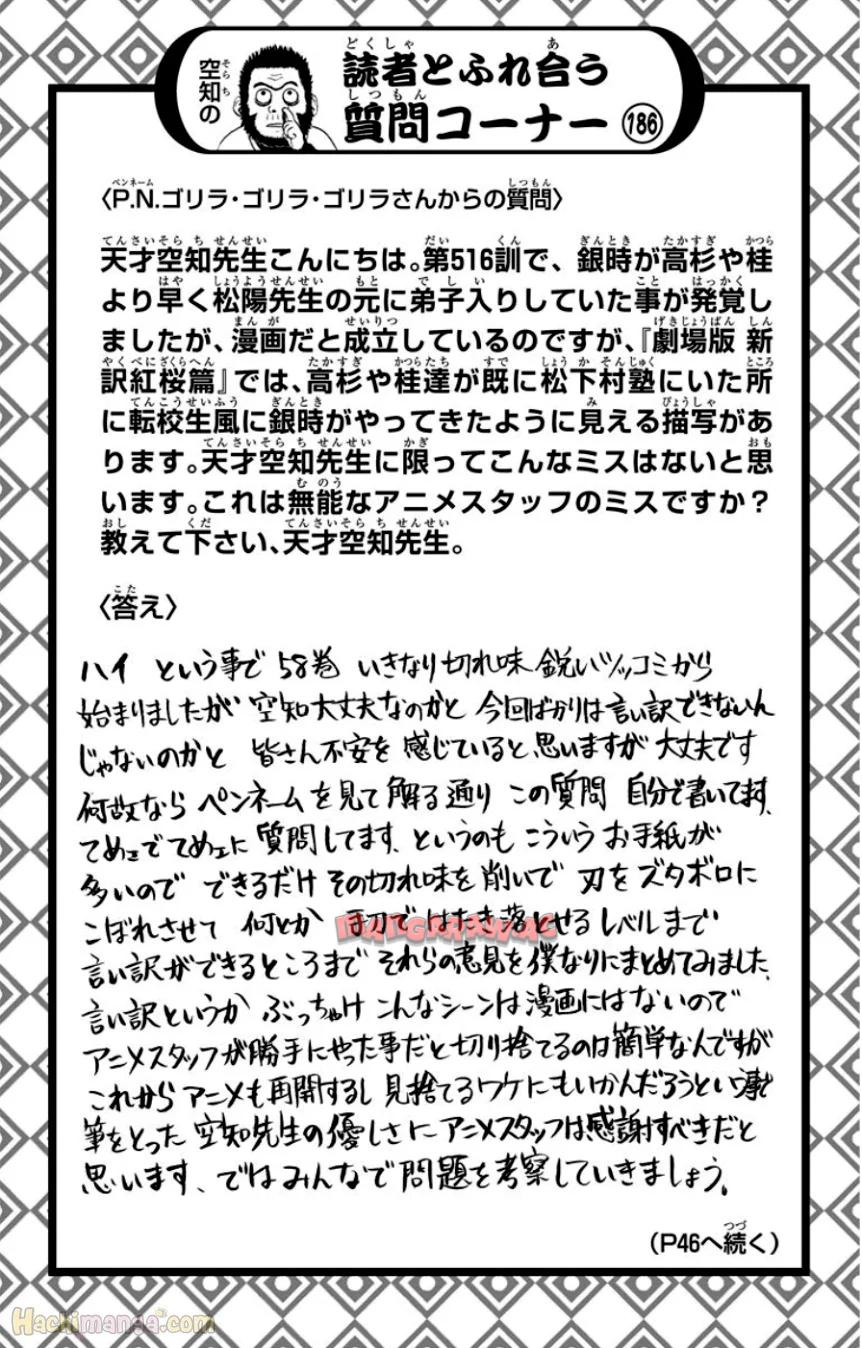 空知の
読者とふれ合う
質問コーナー 186
〈P.N.ゴリラ・ゴリラ・ゴリラさんからの質問〉
天才空知先生こんにちは。第516訓で、銀時が高杉や桂
より早く松陽先生の元に弟子入りしていた事が発覚し
ましたが、漫画だと成立しているのですが、『劇場版 新
訳紅桜篇』では、高杉や桂達が既に松下村塾にいた所
に転校生風に銀時がやってきたように見える描写があ
ります。天才空知先生に限ってこんなミスはないと思
います。これは無能なアニメスタッフのミスですか？
教えて下さい、天才空知先生。
〈答え〉
ハイ という事で 58巻 いきなり切れ味 鋭いツッコミから
始まりましたが 空知大丈夫なのかと 今回ばかりは言い訳できないん
じゃないのかと 皆さん不安を 感じていると思いますが 大丈夫です
何故なら ペンネームを見て解る通り この質問 自分で書いてます、
てめェでてめェに 質問してます、というのも こういう お手紙が
多いので できるだけ その切れ味を削いで 刃をズタボロに
こぼれさせて 何とか 手刀で はたき落とせる レベルまで
言い訳ができるところまで それらの意見を僕なりにまとめてみました、
言い訳というか ぶっちゃけ こんなシーンは漫画にはないので
アニメスタッフが勝手にやった事だと切り捨てるのは簡単なんですが
これから アニメも再開するし 見捨てるワケにもいかんだろうという事で
筆をとった 空知先生の優しさに アニメスタッフは感謝すべきだと
思います、ではみんなで問題を考察していきましょう。
(P46へ続く)
Hachimanga.com